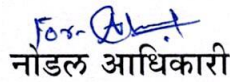 For-
नोडल आधिकारी